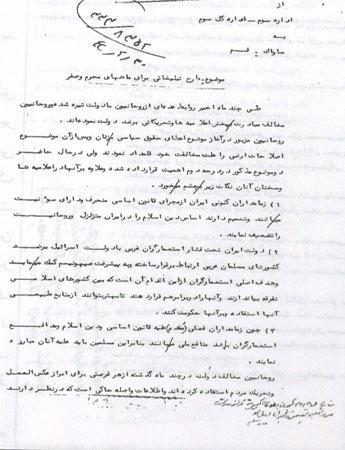 از
اداره سوم - اداره کل سوم
به
ساواک قم
موضوع: طرح تبلیغاتی برای ماههای محرم وصفر
طی چند ماه اخیر روابط عده‌ای از روحانیون با دولت تیره شده و روحانیون
مخالف مبادرت بپخش اعلامیه ها و تحریکاتی برضد دولت نموده‌اند.
روحانیون مزبور در آغاز موضوع اعطای حقوق سیاسی بزنان و پس از آن موضوع
اصلاحات ارضی را علت مخالفت خود قلمداد نمودند ولی در حال حاضر
دو موضوع مذکور در درجه دوم اهمیت قرار داده شده و علاوه بر آنها در اعلامیه ها
و سخنان آنان نکات زیر بچشم میخورد.
۱) زمامداران کنونی ایران از مجرای قانون اساسی منحرف و دارای سوء نیت
میباشند و تصمیم دارند اساس دین اسلام را در ایران متزلزل و روحانیت
را تضعیف نمایند.
۲) دولت ایران تحت فشار استعمارگران غربی با دولت اسرائیل برضد
کشورهای مسلمان عربی ارتباط برقرار ساخته و به پیشرفت صهیونیسم کمک مینماید
و هدف اصلی استعمارگران از این اقدام آن است که بین کشورهای اسلامی
تفرقه بیاندازند و آنها را در برابر هم قرار دهند تا بهتر بتوانند از منابع طبیعی
آنها استفاده و بر آنها حکومت کنند.
۳) چون زمامداران فعلی علیه قانون اساسی و دین اسلام و به نفع
استعمارگران منافع ملی میباشند بنابراین مسلمین باید علیه آنان مبارزه
نمایند.
روحانیون مخالف دولت در چند ماه گذشته از هر فرصتی برای ابراز عکس‌العمل
و تحریک مردم استفاده کرده‌اند و اطلاعات واصله حاکی است که در نظر دارند